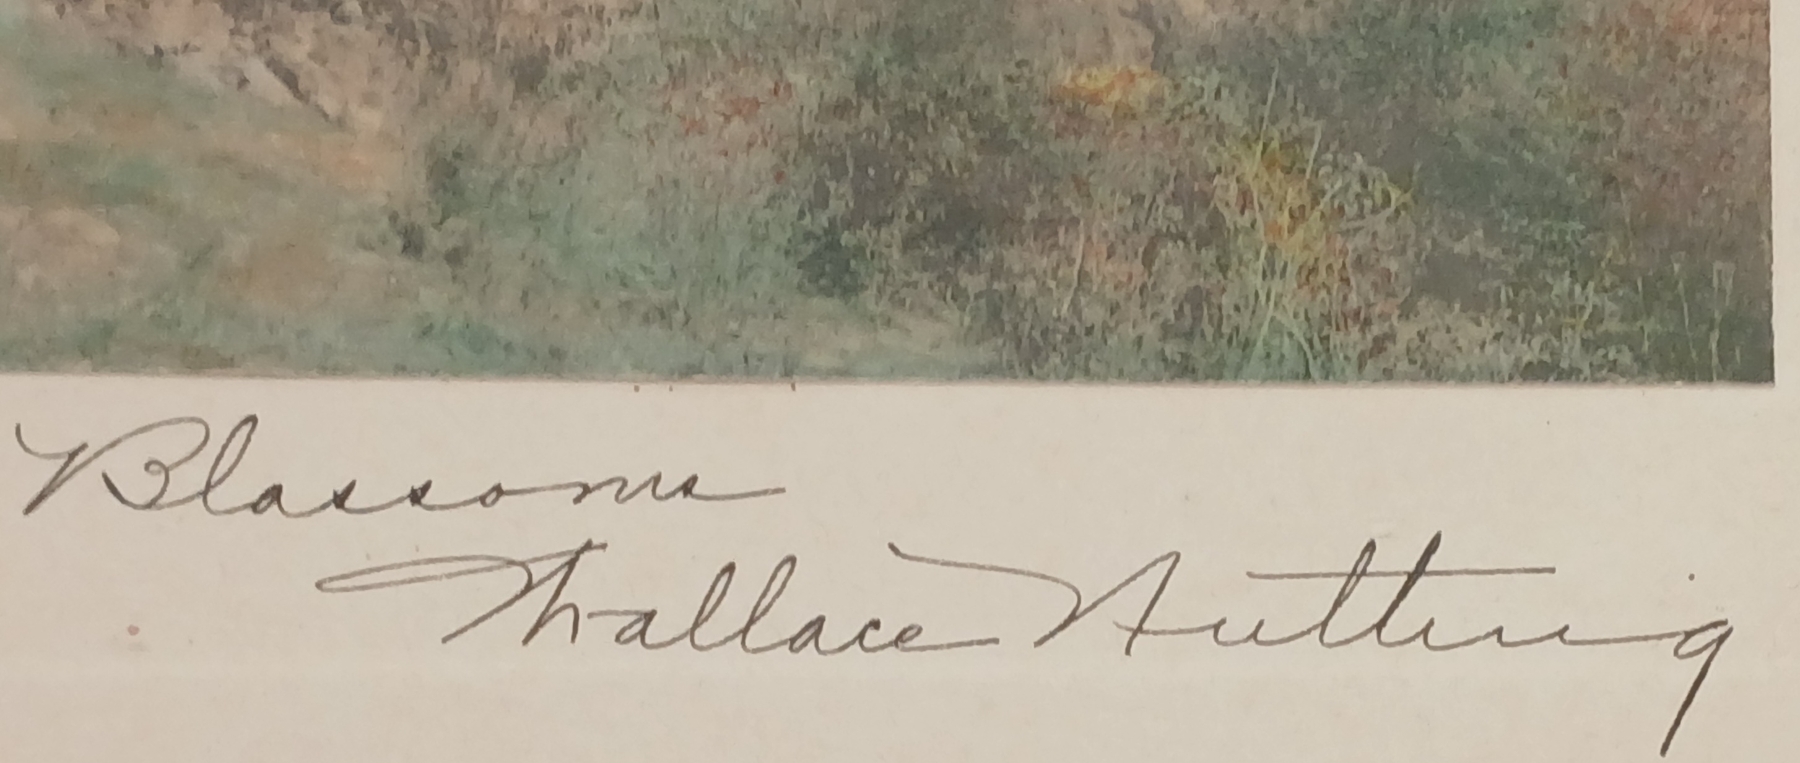 Blossoms
Wallace Nutting